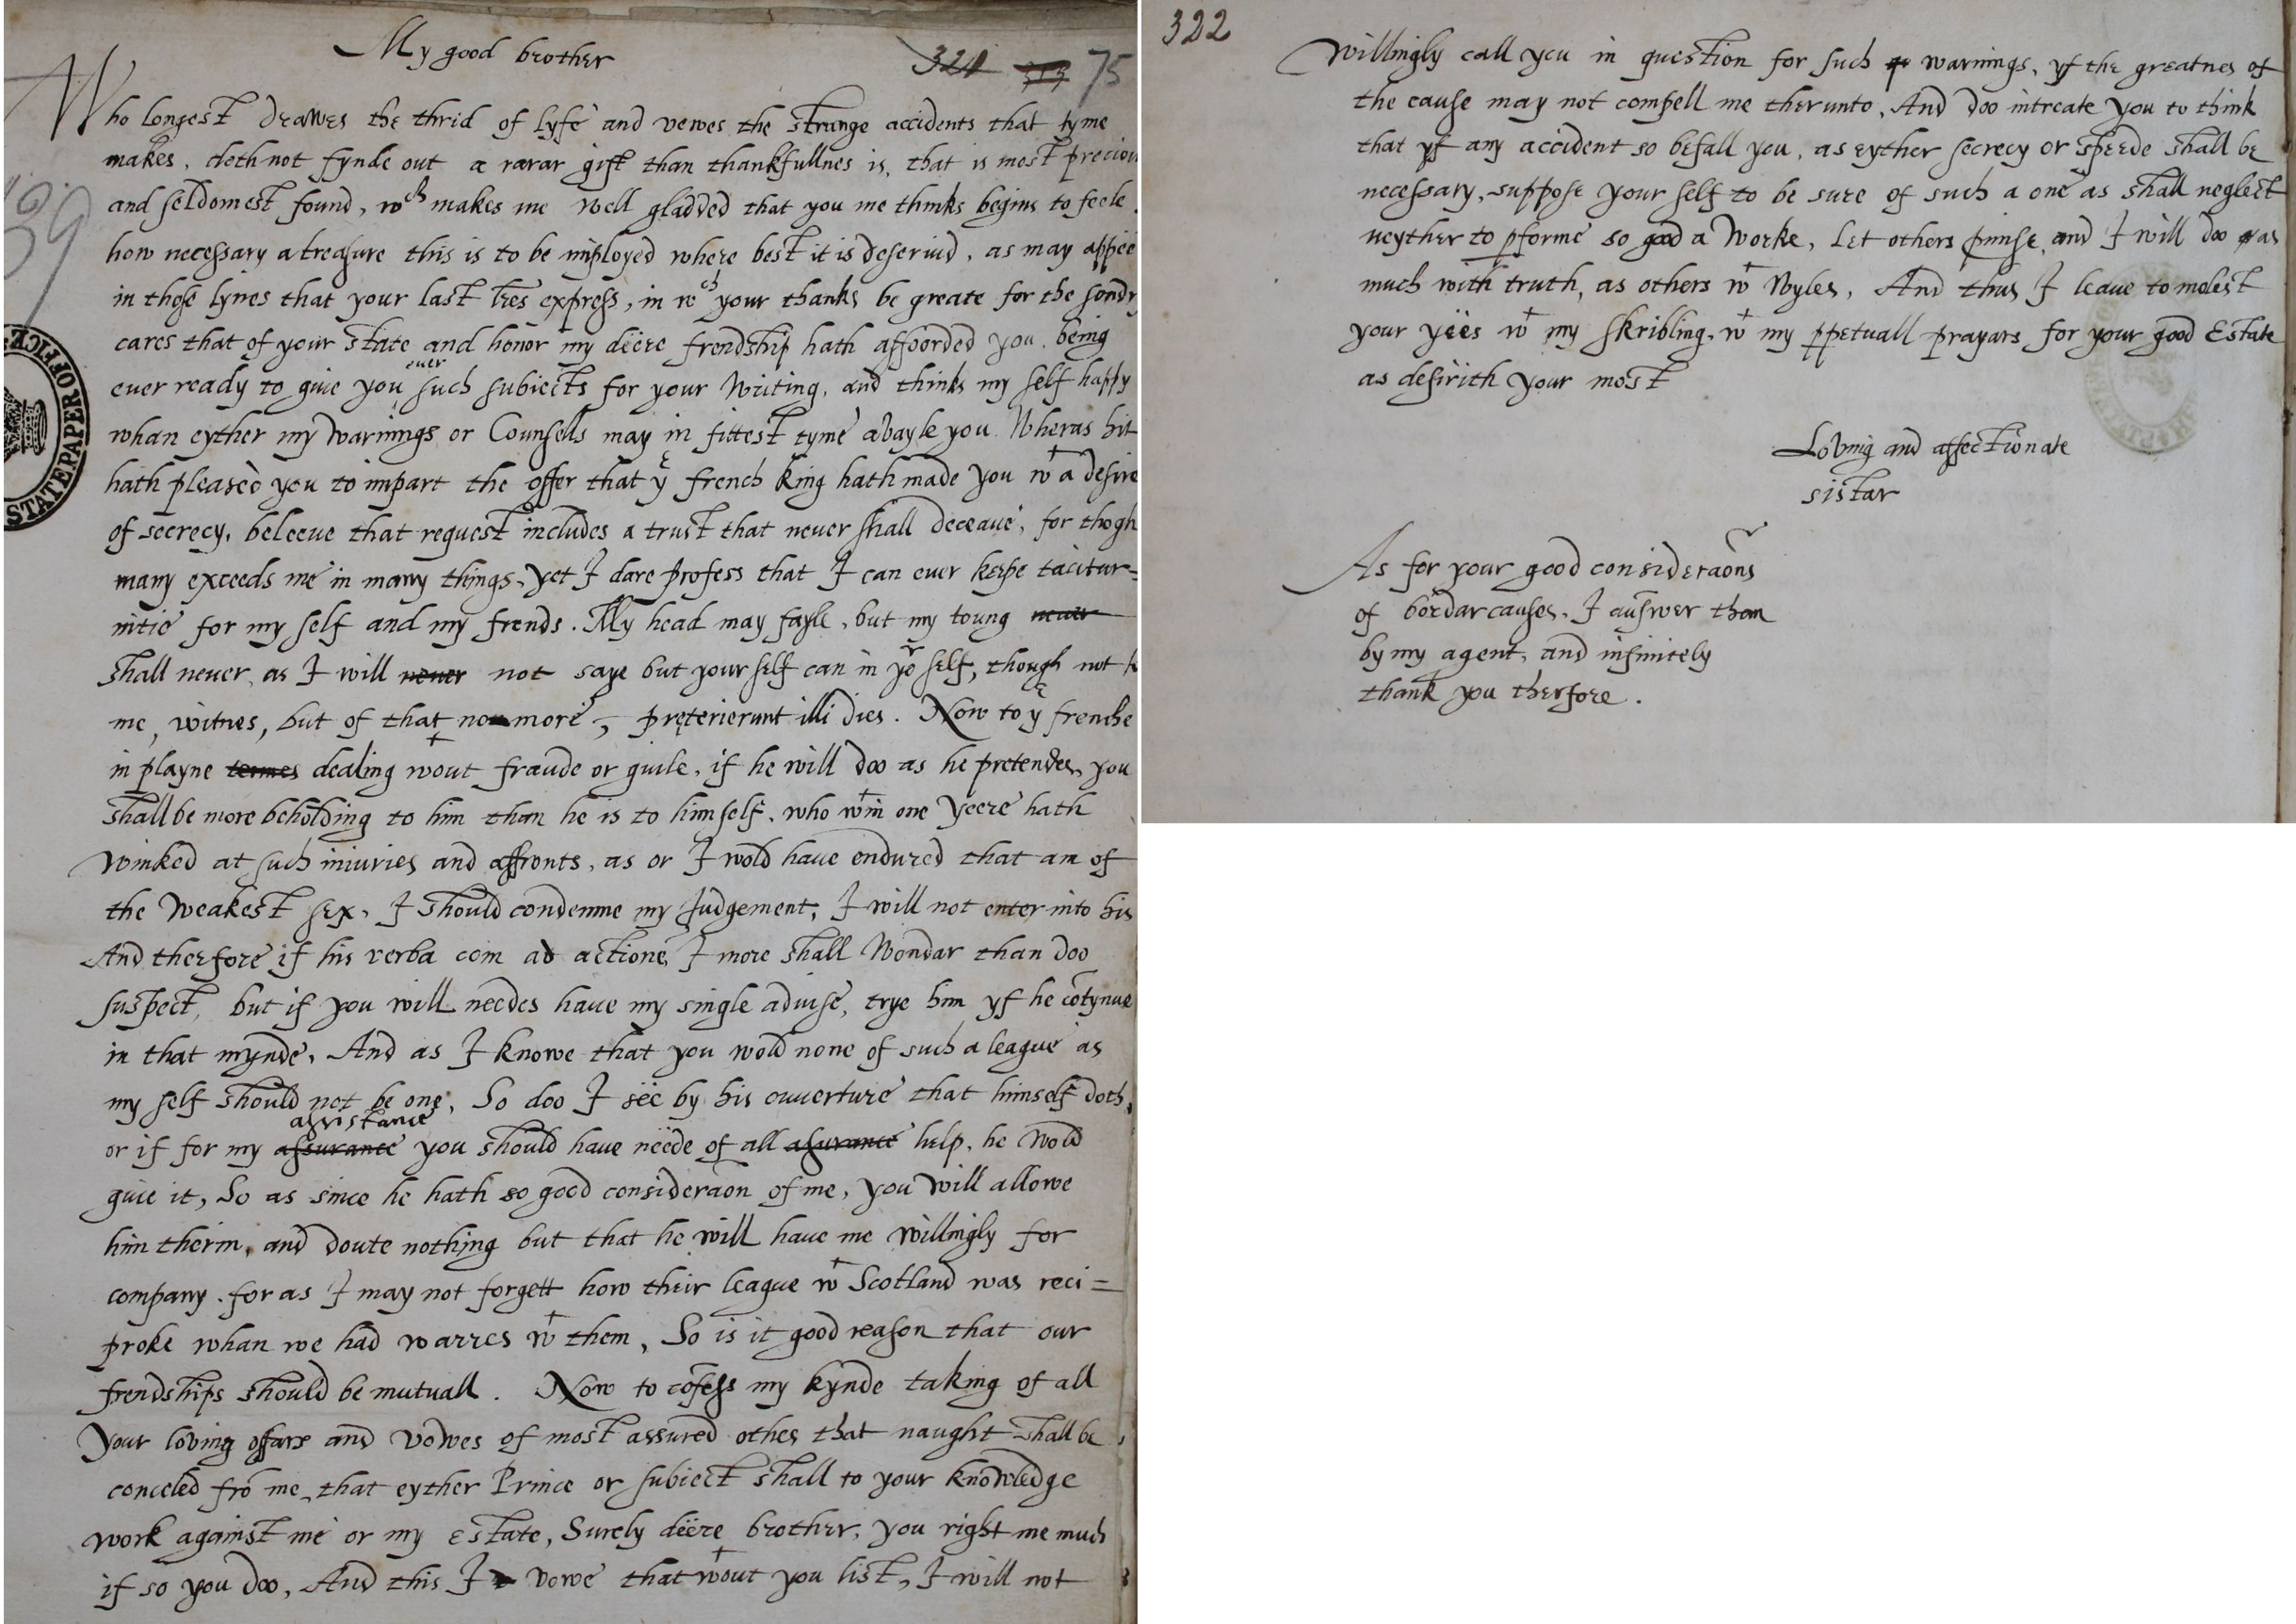 My good brother
321 313 75
Who longest drawes the thrid of lyfe and vewes the strange accidents that tyme
makes, doth not fynde out a rarar gift than thankfullnes is, that is most preciou
and seldomest found, wch makes me well gladded that you me thinks begins to feele
how necessary a treasure this is to be imployed where best it is deseruid, as may appee
in those lynes that your last lres express, in wch your thanks be greate for the sondry
cares that of your state and honor my deere frendship hath affoorded you, being
euer
euer ready to giue you such subiects for your writing, and thinks my self happy
whan eyther my warnings or Counsells may in fittest tyme avayle you. Wheras hit
hath pleased you to impart the offer that ye french king hath made you wt a desire
of secrecy, beleeue that request includes a trust that neuer shall deceaue, for thogh
many exceeds me in many things, yet I dare profess that I can euer keepe tacitur=
nitie for my self and my frends. My head may fayle, but my toung neuer
shall neuer, as I will neuer not saye but your self can in yor self, though not to
me, witnes, but of that no more, preterierunt illi dies. Now to ye frenche
in playne termes dealing wtout fraude or guile, if he will doo as he pretendes, you
shall be more beholding to him than he is to himself, who wtin one yeere hath
winked at such iniuries and affronts, as or I wold haue endured that am of
the weakest sex, I should condemne my Judgement, I will not enter into his
And therfore if his verba com ad actione, I more shall wondar than doo
suspect, but if you will needes haue my single aduise, trye him yf he cōtynue
in that mynde, And as I knowe that you wold none of such a league as
my self should not be one, So doo I see by his ouuerture that himself doth,
assistance
or if for my assurance you should haue neede of all assurance help, he wold
giue it, So as since he hath so good consideraōn of me, you will allowe
him therin, and doute nothing but that he will haue me willingly for
company. for as I may not forgett how their league wt Scotland was reci=
proke whan we had warres wt them, So is it good reason that our
frendships should be mutuall. Now to cōfess my kynde taking of all
your loving offars and vowes of most assured othes that naught shall be
conceled frō me, that eyther Prince or subiect shall to your knowledge
work against me or my estate, Surely deere brother, you right me much
if so you doo, And this I vowe that wtout you list, I will not
322
willingly call you in question for such warnings, yf the greatnes of
the cause may not compell me therunto, And doo intreate you to think
that yf any accident so befall you, as eyther secrecy or speede shall be
necessary, suppose your self to be sure of such a one as shall neglect
neyther to pforme so good a worke, Let others pmise, and I will doo as
much with truth, as others wt wyles, And thus I leaue to molest
your yees wt my skribling, wt my ppetuall prayars for your good Estate
as desirith your most
Loving and affectionate
sistar
As for your good consideraōns
of bordar causes, I answer than
by my agent, and infinitely
thank you therfore.
STATE PAPER OFFICE